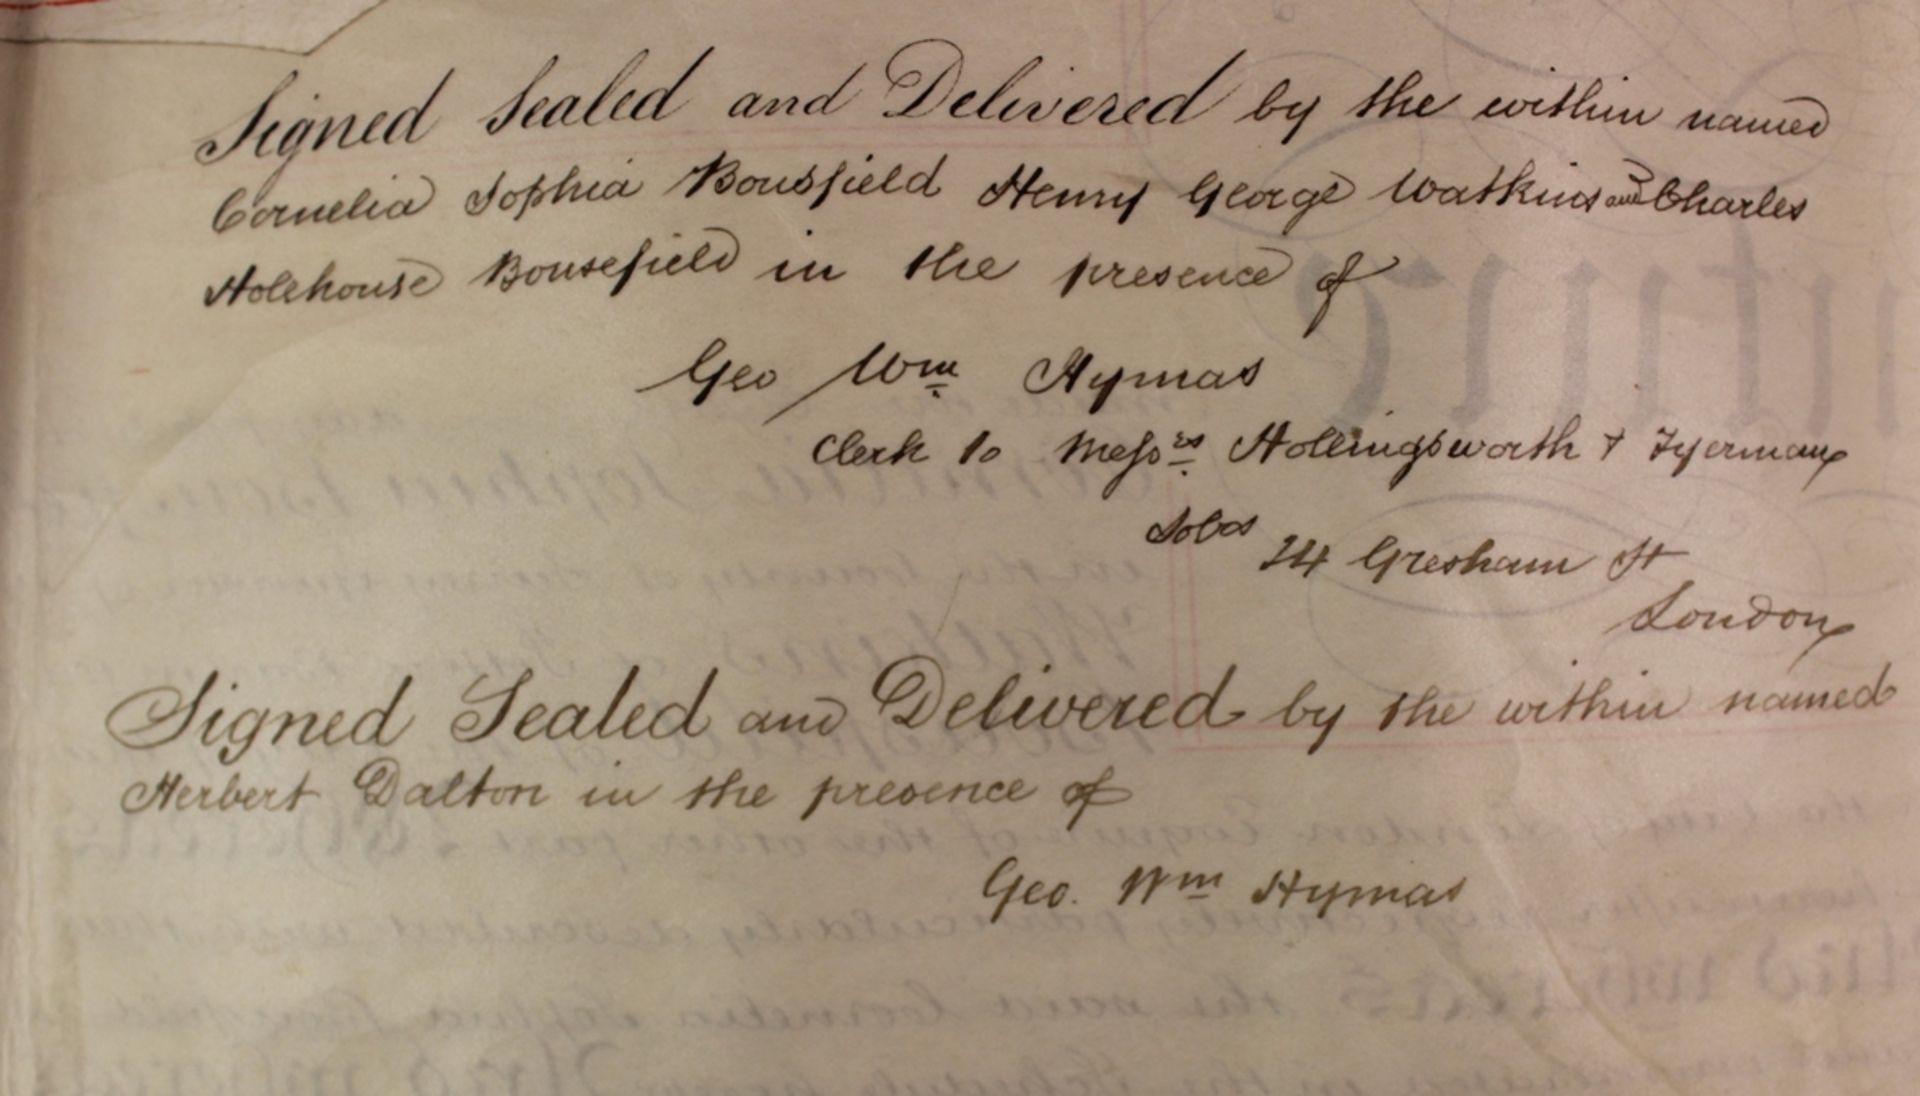 Signed Sealed and Delivered by the within named
Cornelia Sophia Bousfield Henry George Watkins and Charles
Holehouse Bousefield in the presence of
Geo Wm Hymas
Clerk to Messrs Hollingsworth & Tyerman
Solrs
24 Gresham St
London
Signed Sealed and Delivered by the within named
Herbert Dalton in the presence of
Geo. Wm Hymas